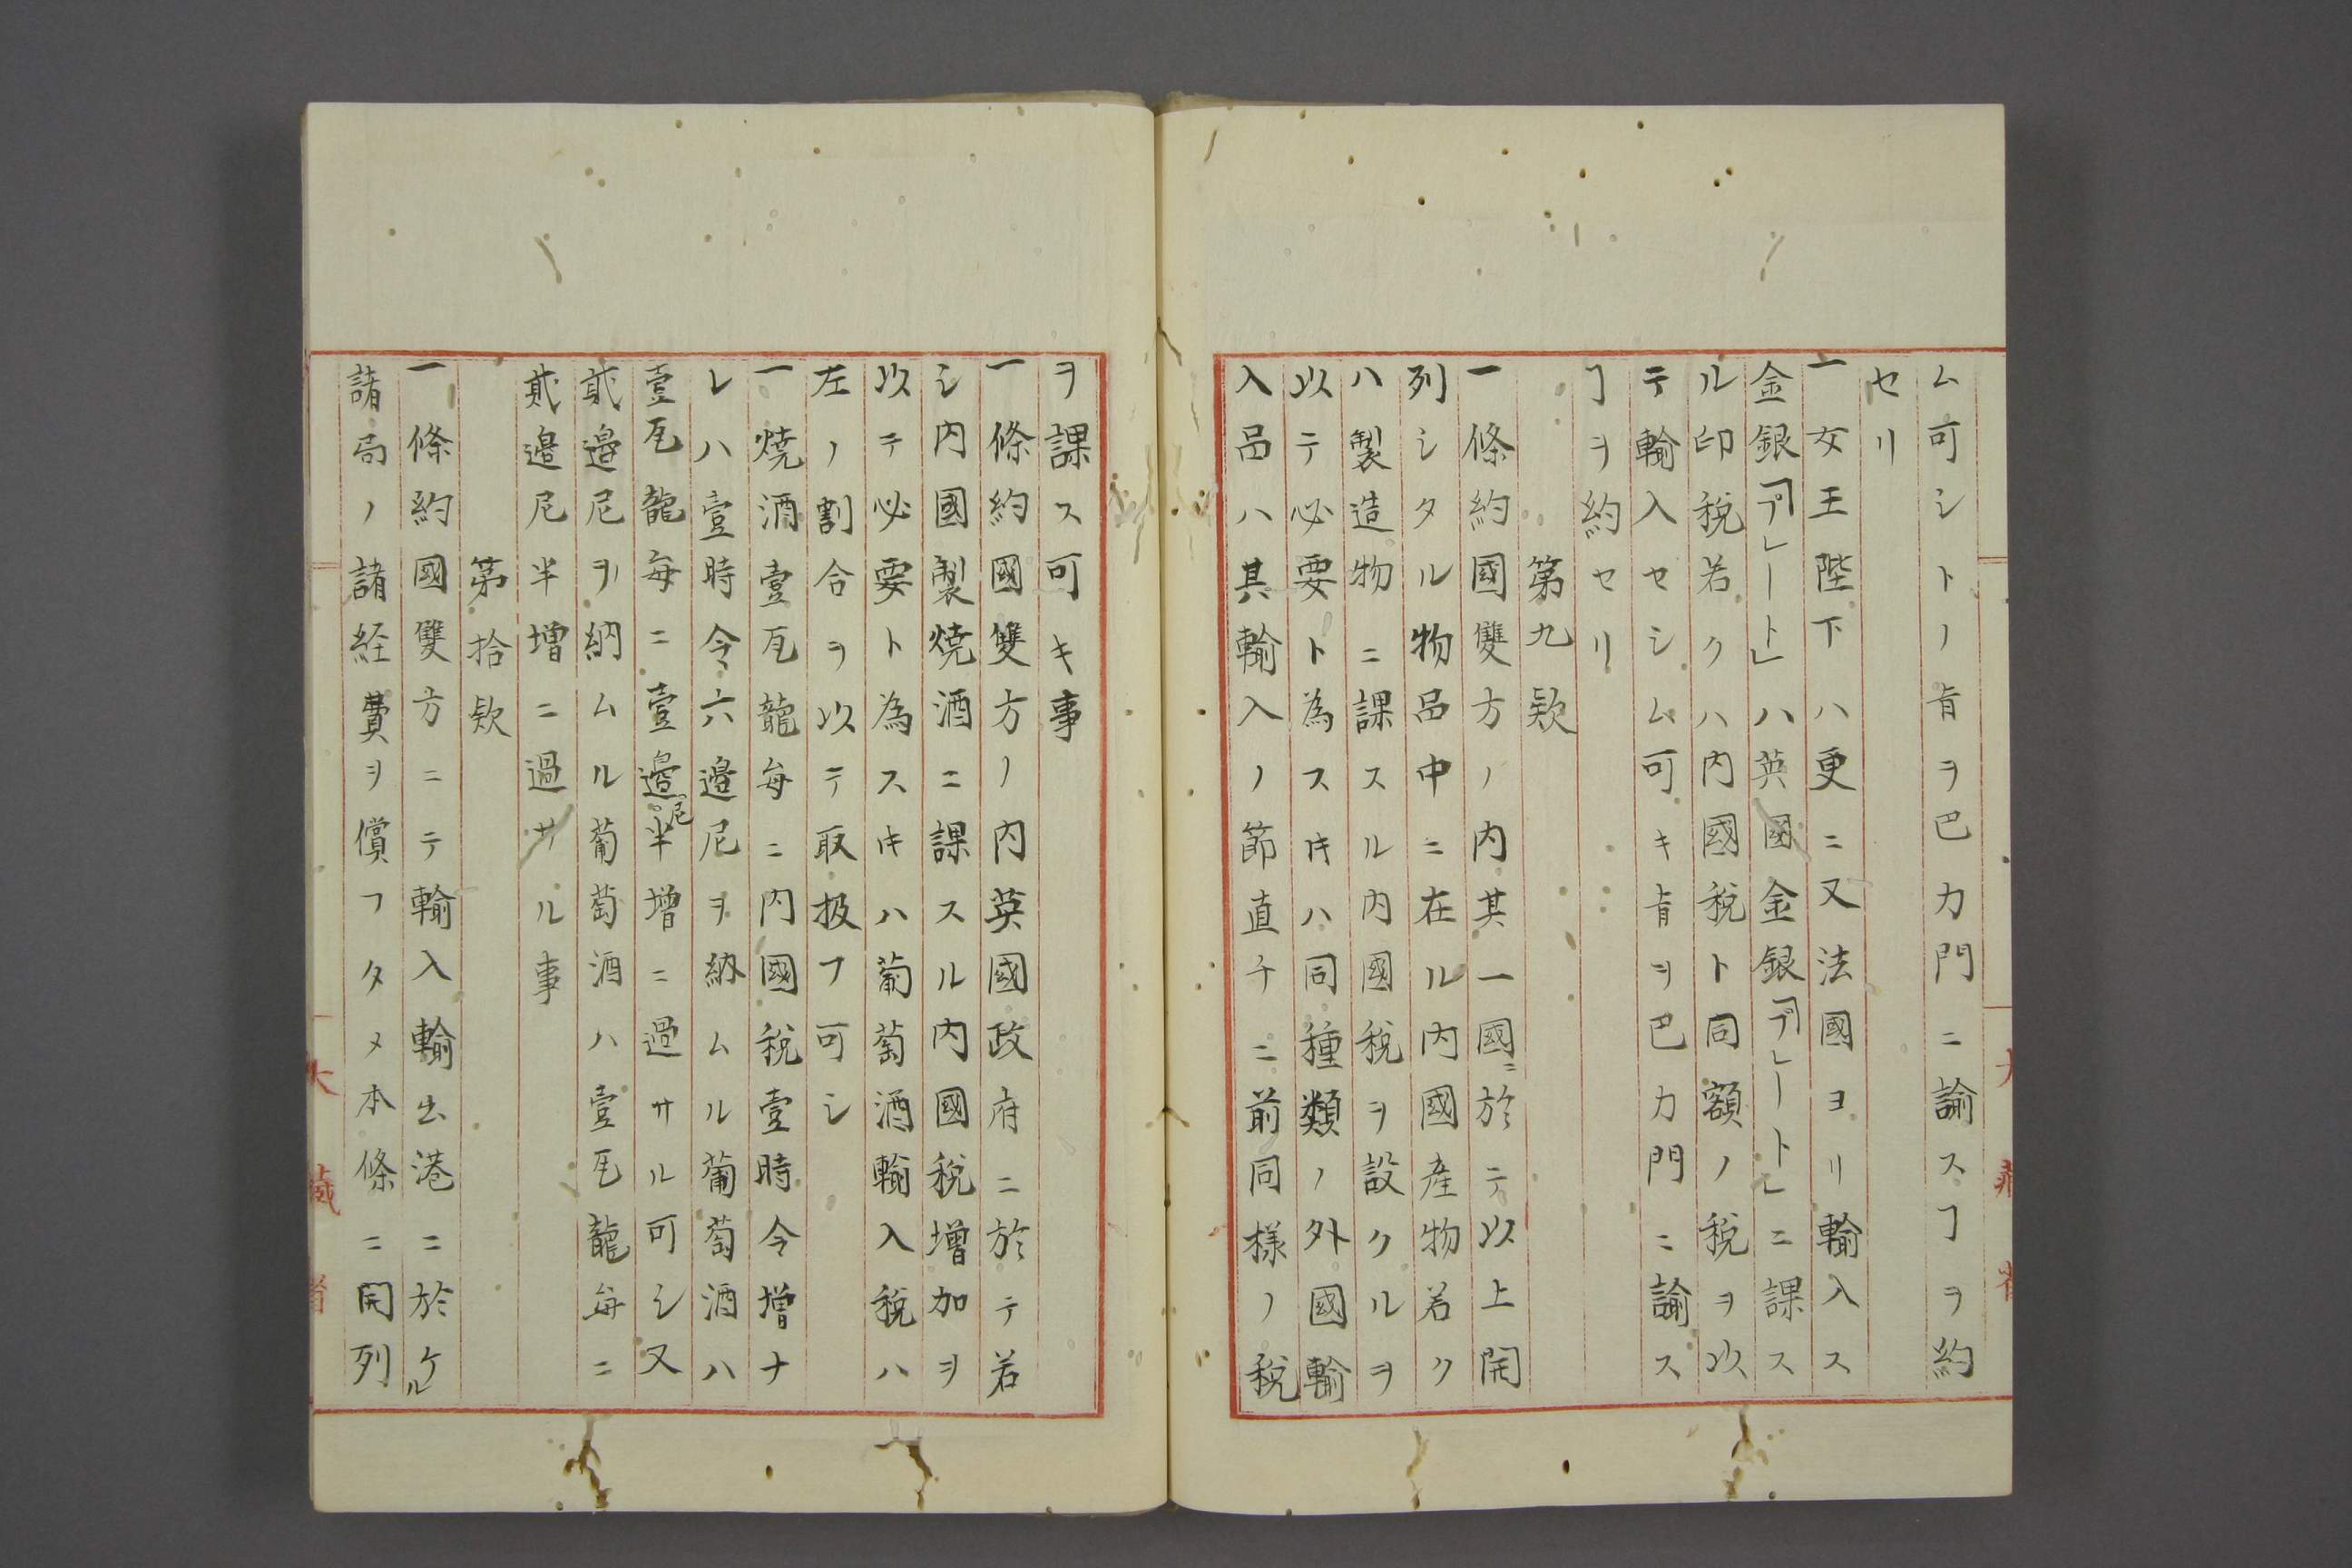 ム可シトノ㫖ヲ巴力門ニ諭スヿヲ約
セリ
一女王陛下ハ更ニ又法國ヨリ輸入ス
金銀「プレート」ハ英國金銀「プレート」ニ課ス
ル印税若クハ内國税ト同額ノ税ヲ以
テ輸入セシム可キ㫖ヲ巴力門ニ諭ス
ヿヲ約セリ
第九欵
一條約國雙方ノ内其一國ニ於テ以上開
列シタル物品中ニ在ル内國産物若ク
ハ製造物ニ課スル内國税ヲ設クルヲ
以テ必要ト為スキハ同種類ノ外國輸
入品ハ其輸入ノ節直チニ前同様ノ税
ヲ課ス可キ事
一條約國雙方ノ内英國政府ニ於テ若
シ内國製焼酒ニ課スル内國税増加ヲ
以テ必要ト為スキハ葡萄酒輸入税ハ
左ノ割合ヲ以テ取扱フ可シ
一焼酒壹瓦龍毎ニ内國税壹時令増ナ
レハ壹時令六邉尼ヲ納ムル葡萄酒ハ
壹瓦龍毎ニ壹邉尼半増ニ過サル可シ又
貳邉尼ヲ納ムル葡萄酒ハ壹瓦龍毎ニ
貳邉尼半増ニ過サル事
第拾欵
一條約國雙方ニテ輸入輸出港ニ於ケル
諸局ノ諸経費ヲ償フタメ本條ニ開列
大藏省